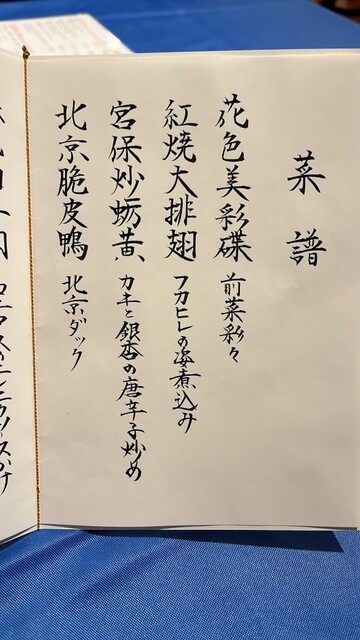 菜譜
花色美彩碟 前菜彩々
紅燒大排翅 フカヒレの姿煮込み
宮保炒蛎黄 カキと銀杏の唐辛子炒め
北京脆皮鴨 北京ダック